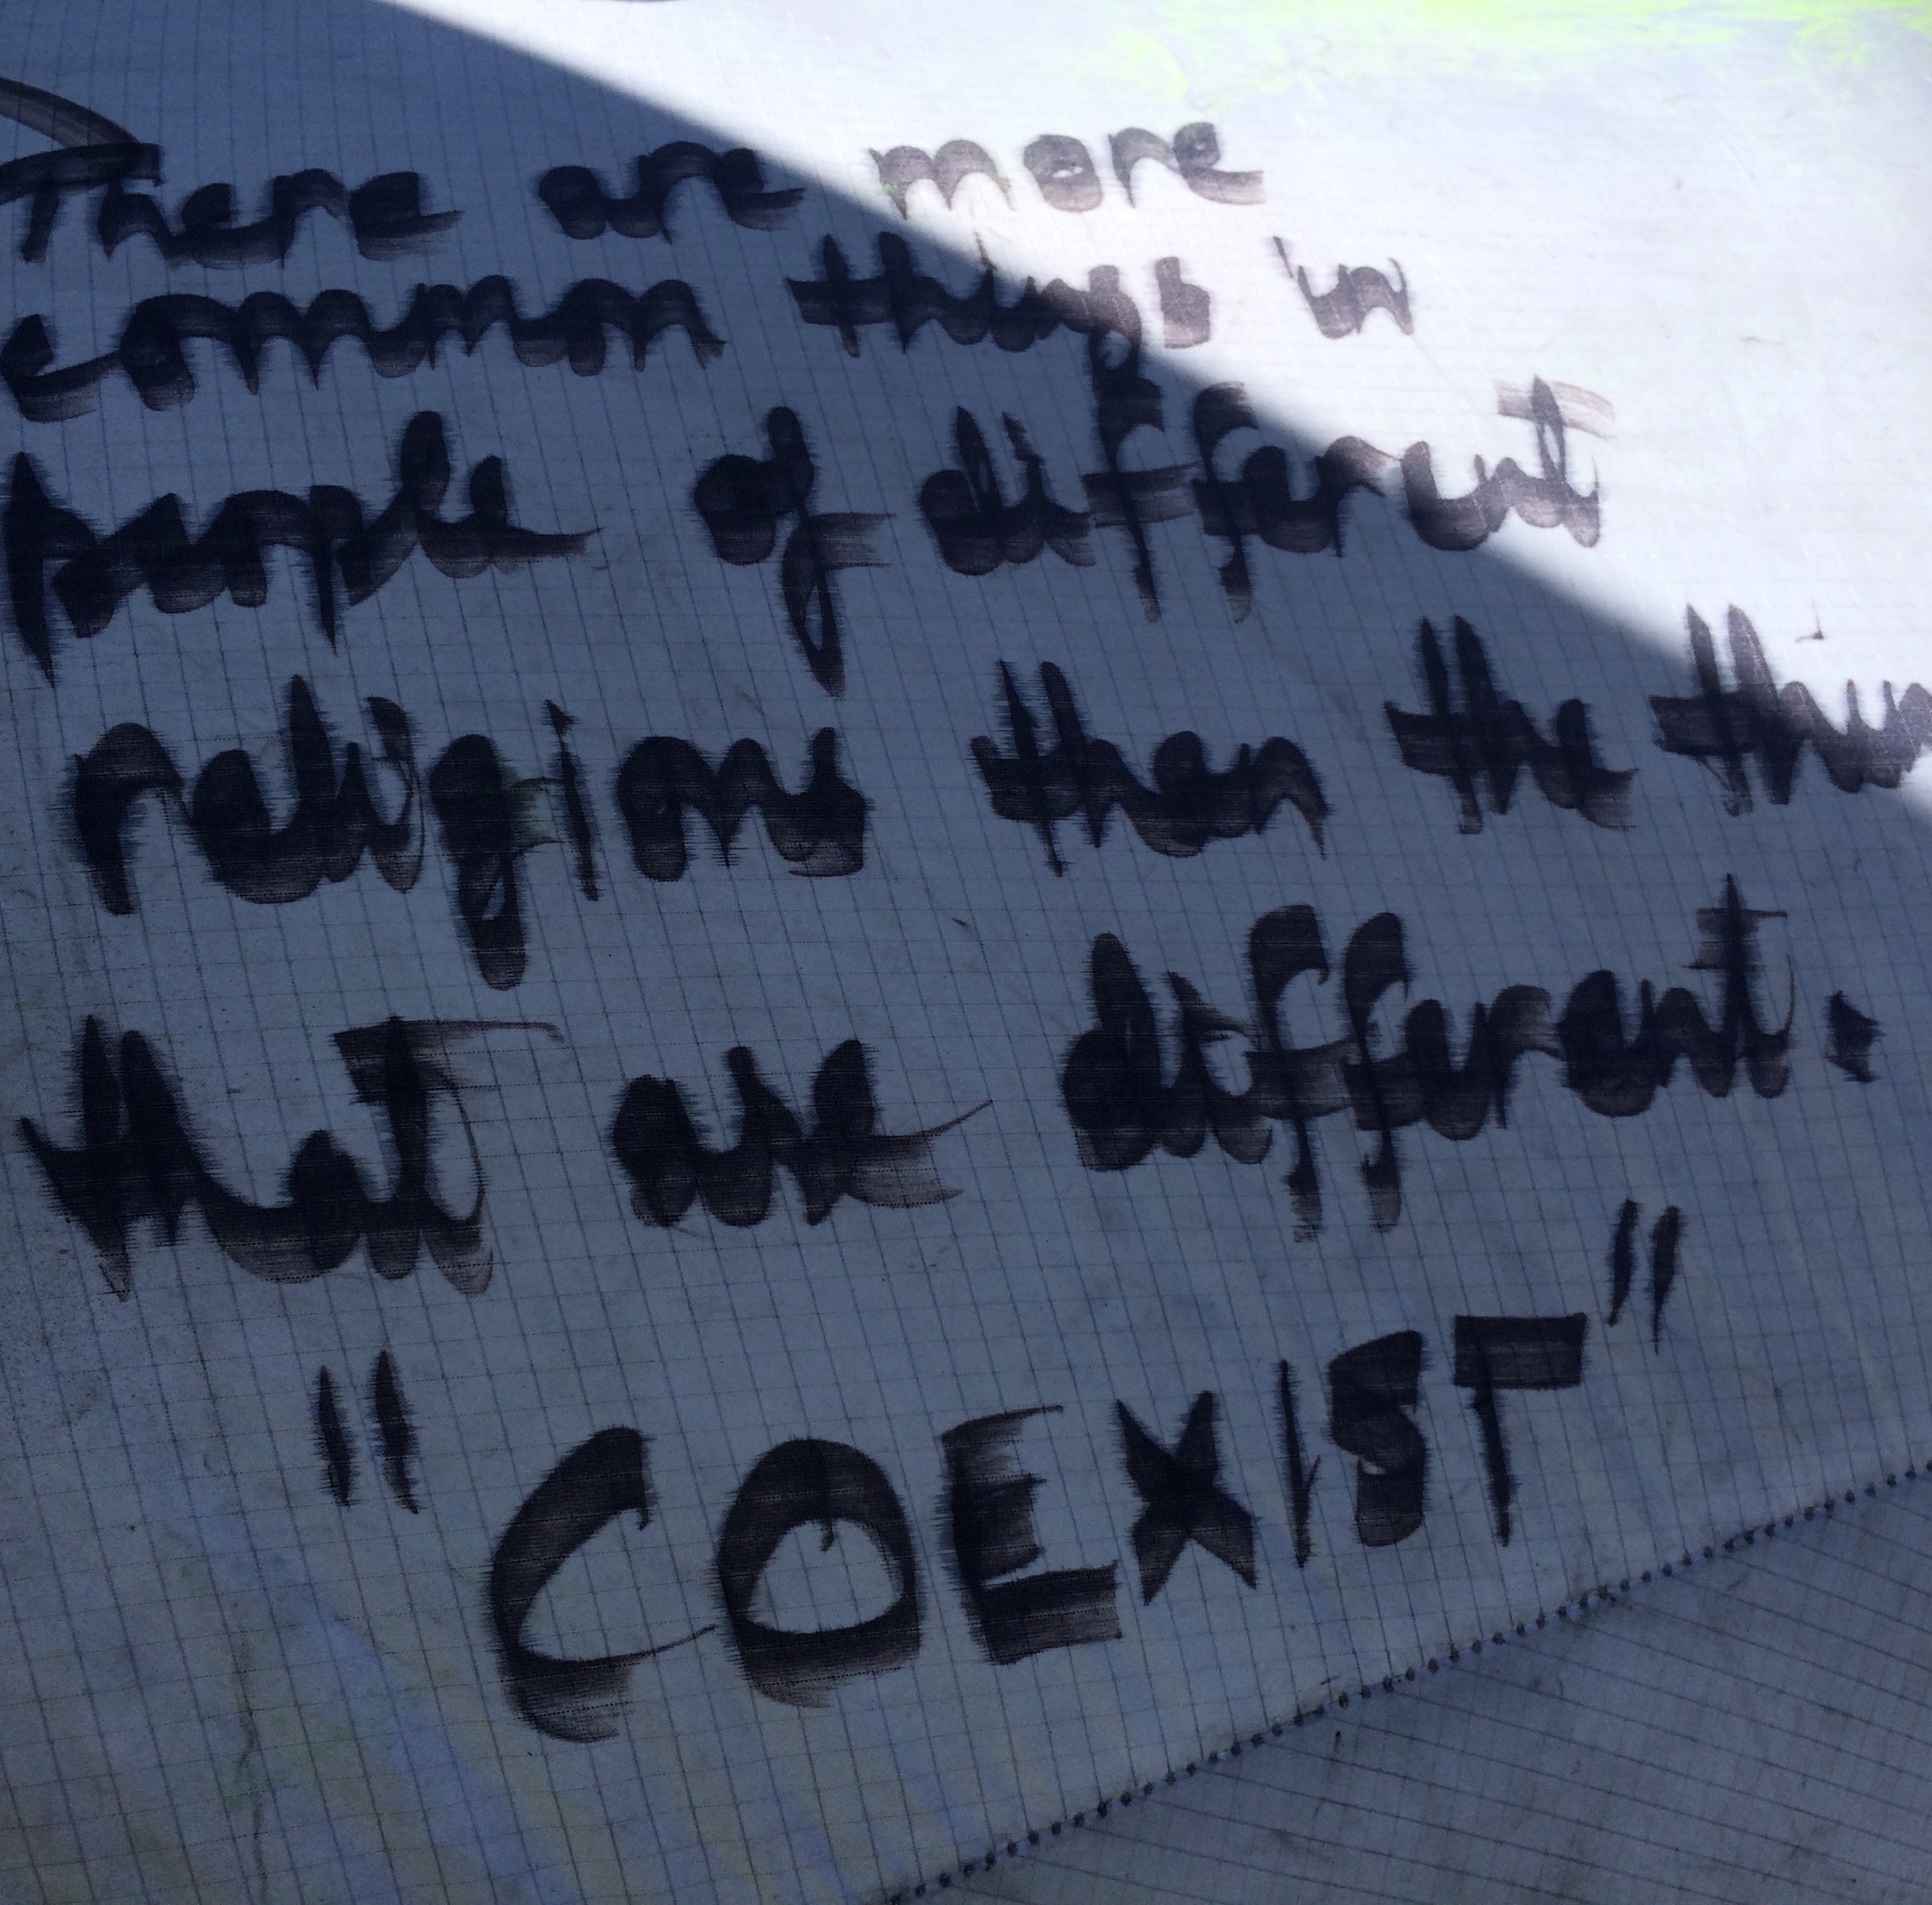 There are more
common things in
people of different
religions then the thin
that are different.
"COEXIST"